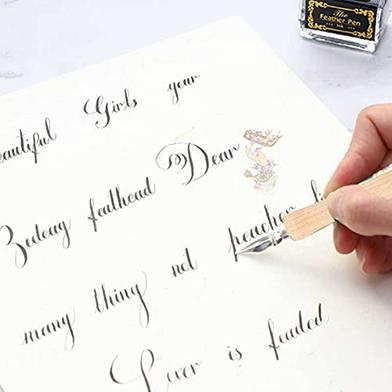 The
Feather Pen
INK
eautiful Girls your
feathead Dear
many thing not peachen
Lover is feaded